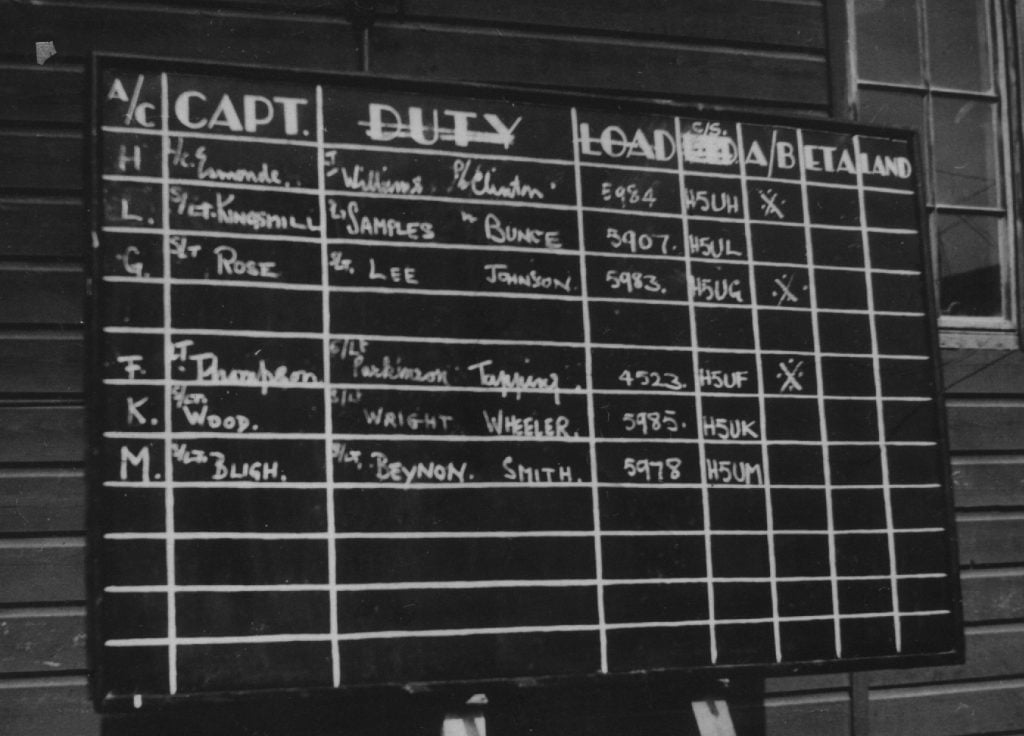 A/C CAPT. DUTY LOAD C/S. A/B ETA LAND
H L/C. Esmonde. Williams P/ Clinton. 5984 H5UH X
L. S/LT. KINGSMILL SAMPLES BUNCE 5907. H5UL
G. S/LT ROSE S/LT. LEE JOHNSON. 5983. H5UG X
F. LT. Thompson S/LT Parkinson Tapping. 4523. H5UF X
K. S/LT WOOD. S/LT WRIGHT WHEELER. 5985. H5UK
M. S/LT. BLIGH. S/LT. BEYNON. SMITH. 5978 H5UM